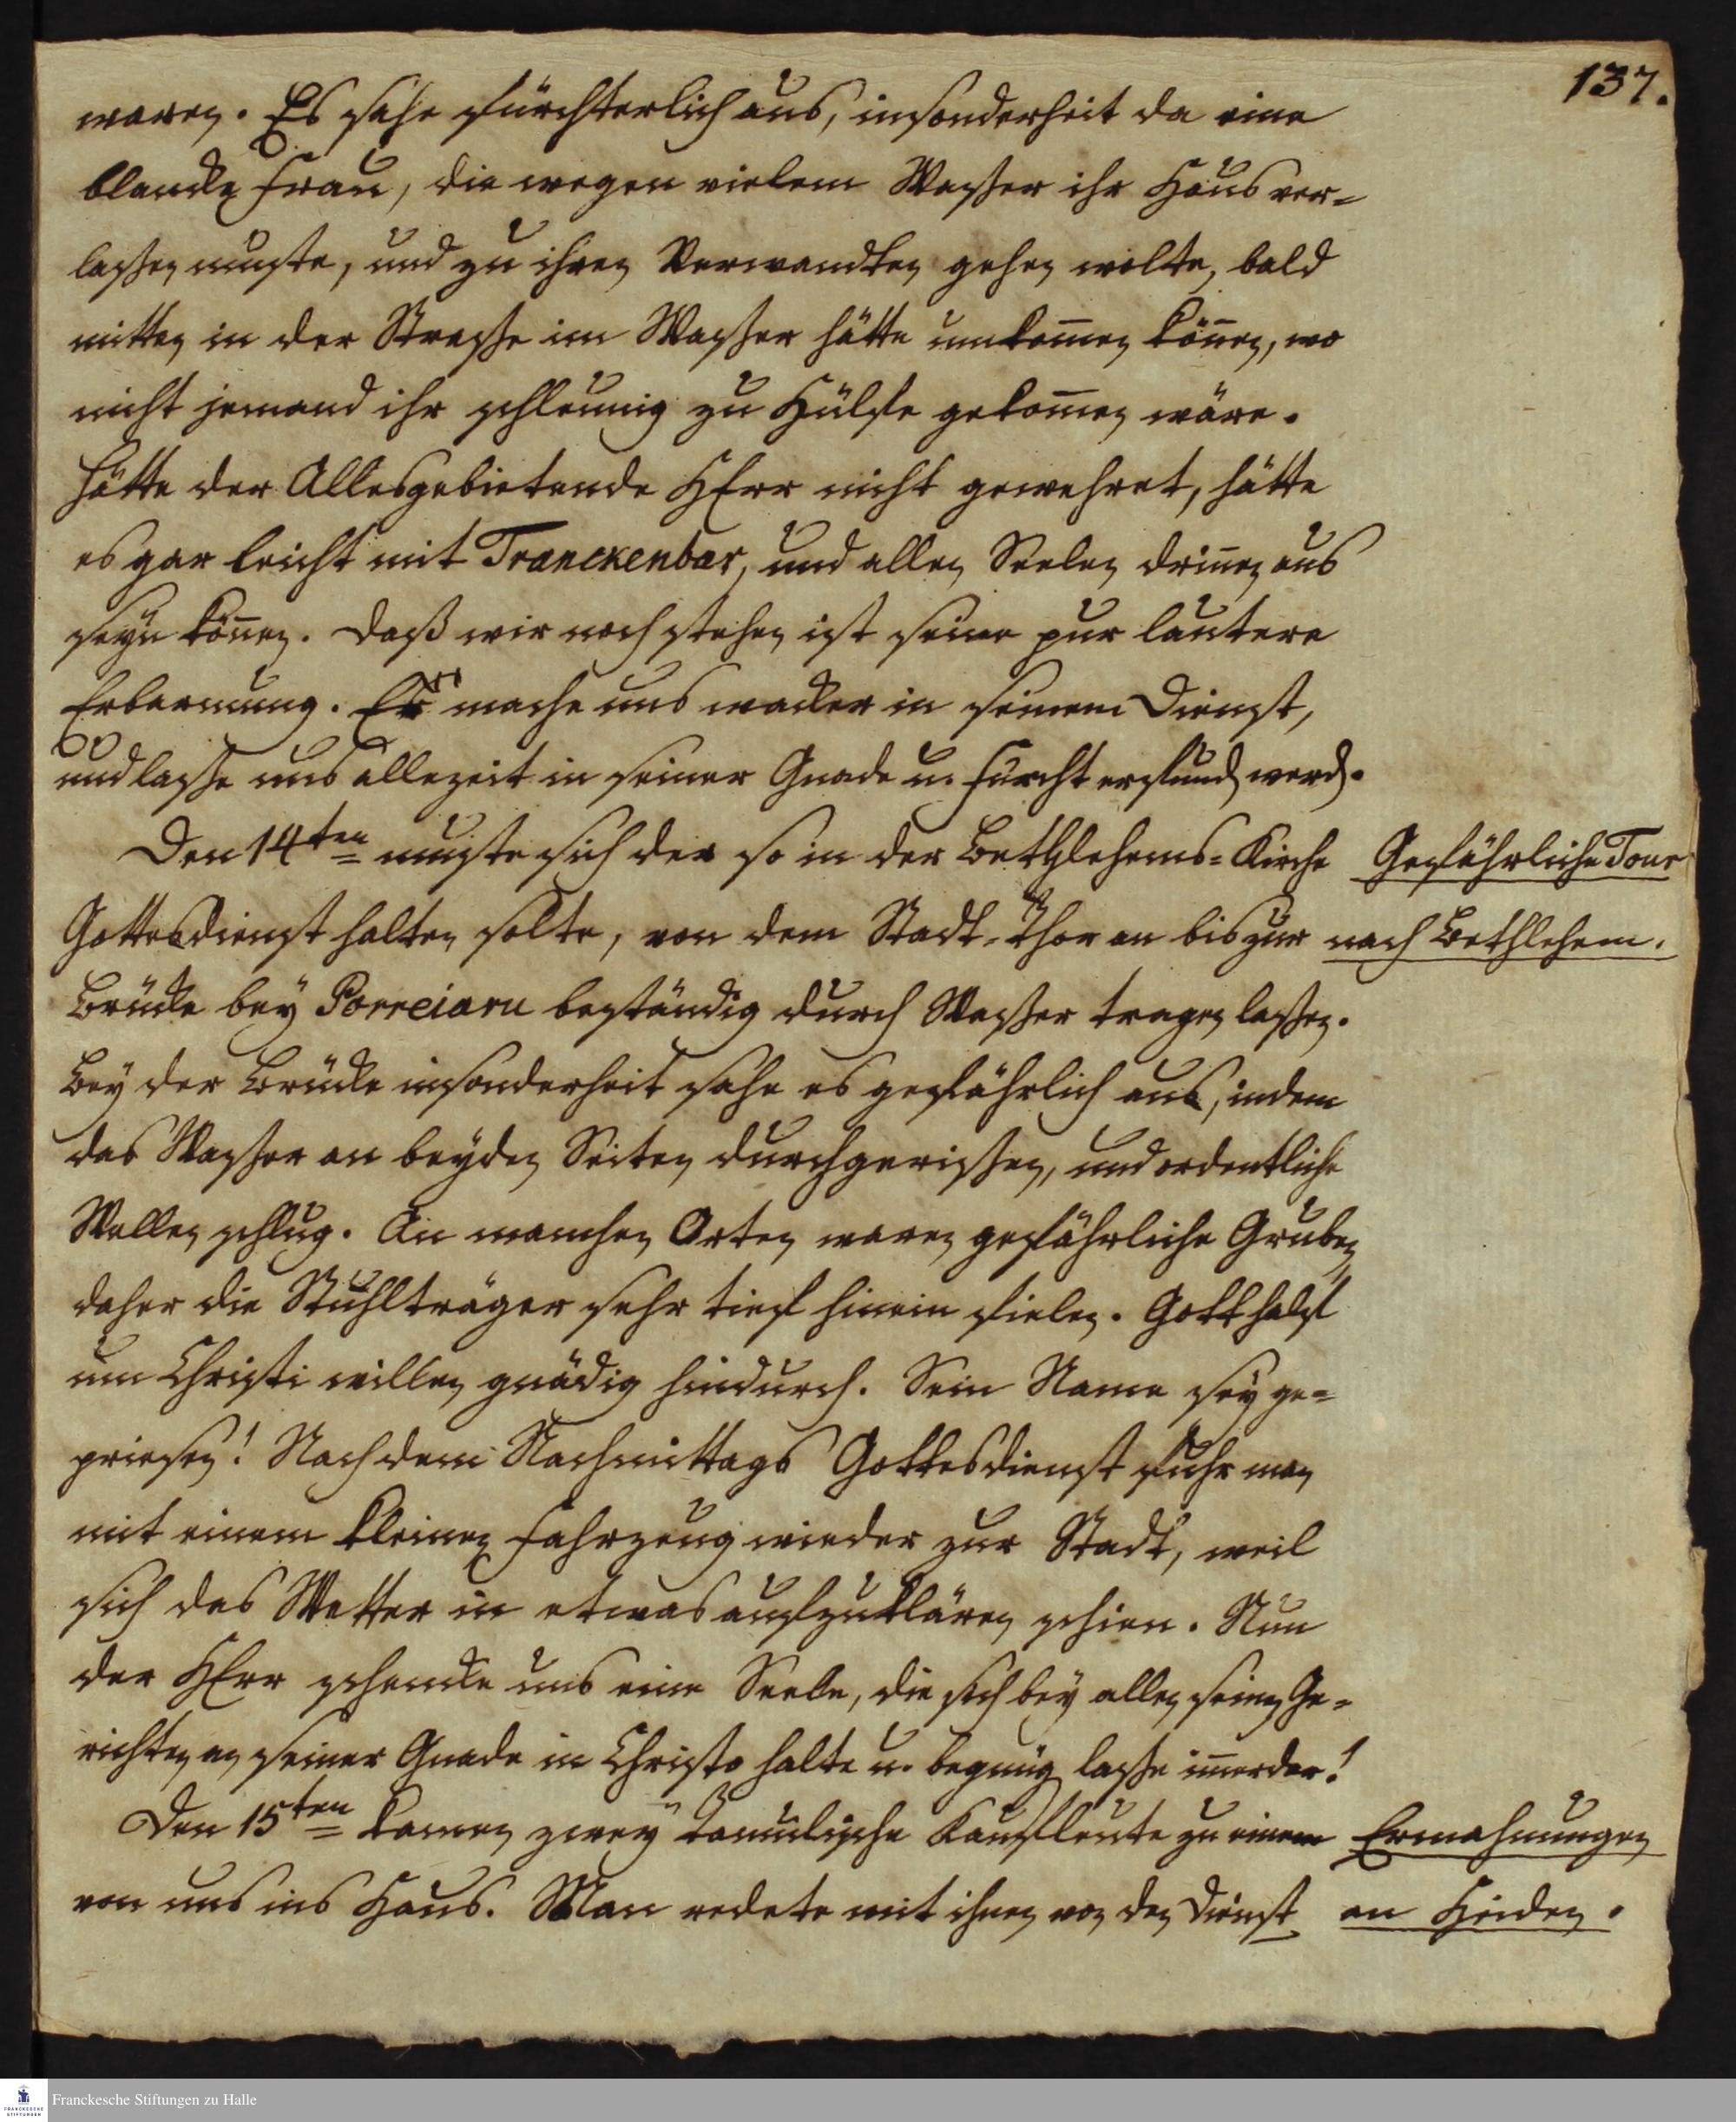 137.
waren. Es sahe fürchterlich aus, insonderheit da eine
blancke Frau, die wegen vielem Waßer ihr Haus ver-
laßen muste, und zu ihren Verwandten gehen wolte, bald
mitten in der Straße im Waßer hätte umkom̄en kön̄en, wo
nicht jemand ihr schleunig zu Hülfe gekom̄en wäre.
Hätte der Allesgebietende HErr nicht gewehret, hätte
es gar leicht mit Tranckenbar, und allen Seelen drin̄en aus
seyn kön̄en. Daß wir noch stehen ist seine pur lautere
Erbarmung. Er mache uns wacker in seinem Dienst,
und laße uns allezeit in seiner Gnade u. Furcht erfund werd.
Den 14ten muste sich der so in der Bethlehems-Kirche
Gefährliche Tour
Gottesdienst halten solte, von dem Stadt-Thor an bis zur
nach Bethlehem.
Brücke bey Porreiaru beständig durch Waßer tragen laßen.
Bey der Brücke insonderheit sahe es gefährlich aus, indem
das Waßer an beyden Seiten durchgerißen, und ordentliche
Wellen schlug. An manchen Orten waren gefährliche Gruben
daher die Stuhlträger sehr tief hinein fielen. Gott half
um Christi willen gnädig hindurch. Sein Name sey ge-
priesen! Nach dem Nachmittags Gottesdienst fuhr man
mit einem kleinen Fahrzeug wieder zur Stadt, weil
sich das Wetter in etwas aufzuklären schien. Nun
der HErr schencke uns eine Seele, die sich bey allen seinen Ge-
richten an seiner Gnade in Christo halte u. begnüg laße im̄erdar!
Den 15ten kamen zwey Tamulische Kaufleute zu einem
Ermahnungen
von uns ins Haus. Man redete mit ihnen von den Dienst
an Heiden.
Franckesche Stiftungen zu Halle
FRANCKESCHE
STIFTUNGEN